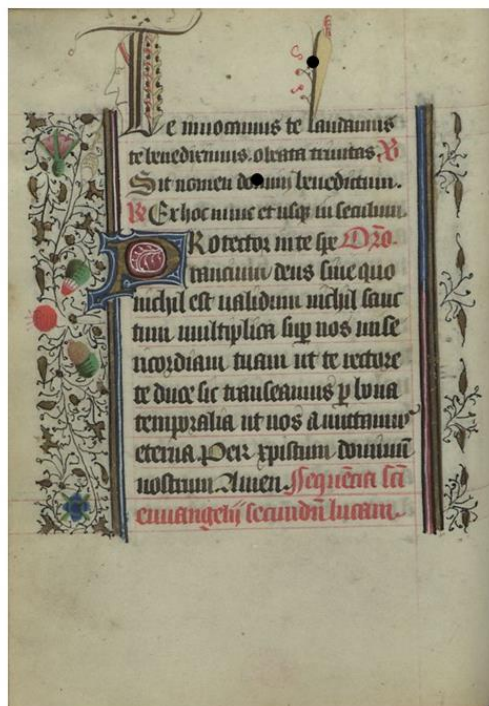 Te inuocamus te laudamus
te benedicimus. o beata trinitas. V
Sit nomen domini benedictum.
R Ex hoc nunc et usq; in seculum.
PRotector in te spe Oro.
rancium deus sine quo
nichil est ualidum nichil sanc
tum multiplica sup nos mise
ricordiam tuam ut te rectore
te duce sic transeamus p bona
temporalia ut nos amittamus
eterna Per xpistum dominū
nostrum. Amen. Sequētia scī
euuangelij secundū lucam.